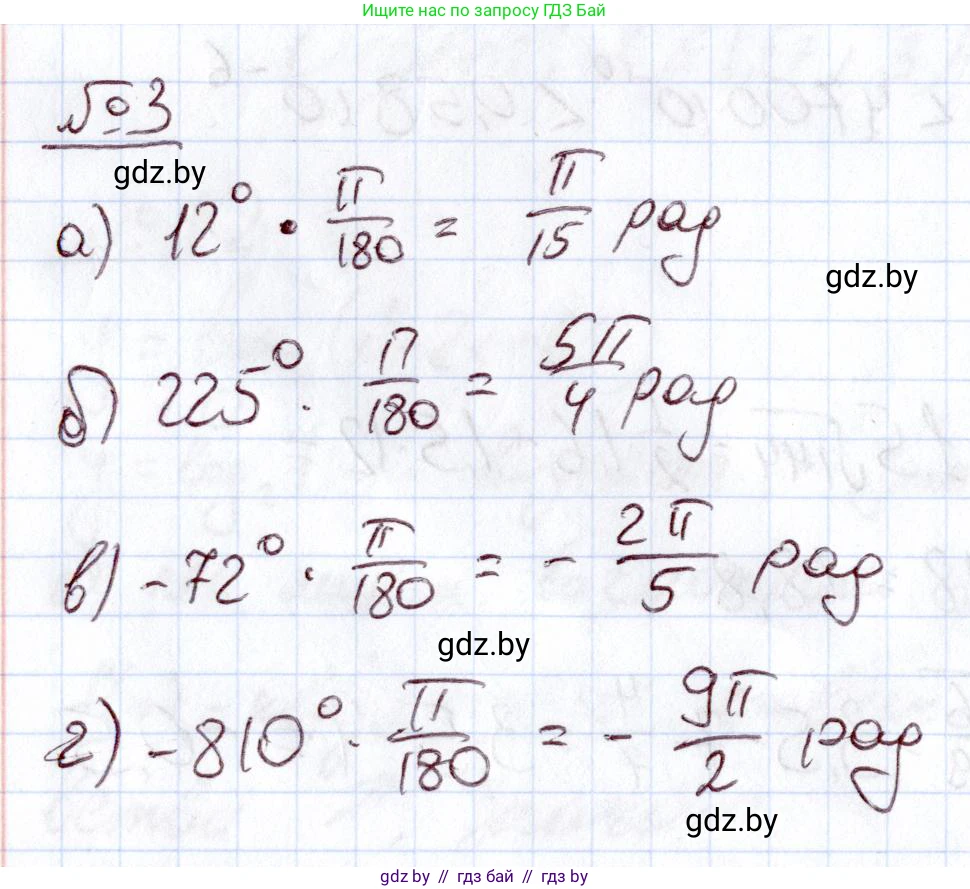 Ищите нас по запросу ГДЗ Бай
№3
gdz.by
а) 12° · π/180 = π/15 рад
gdz.by
б) 225° · π/180 = 5π/4 рад
в) -72° · π/180 = - 2π/5 рад
gdz.by
г) -810° · π/180 = - 9π/2 рад
gdz.by
gdz.by // гдз бай // гдз by